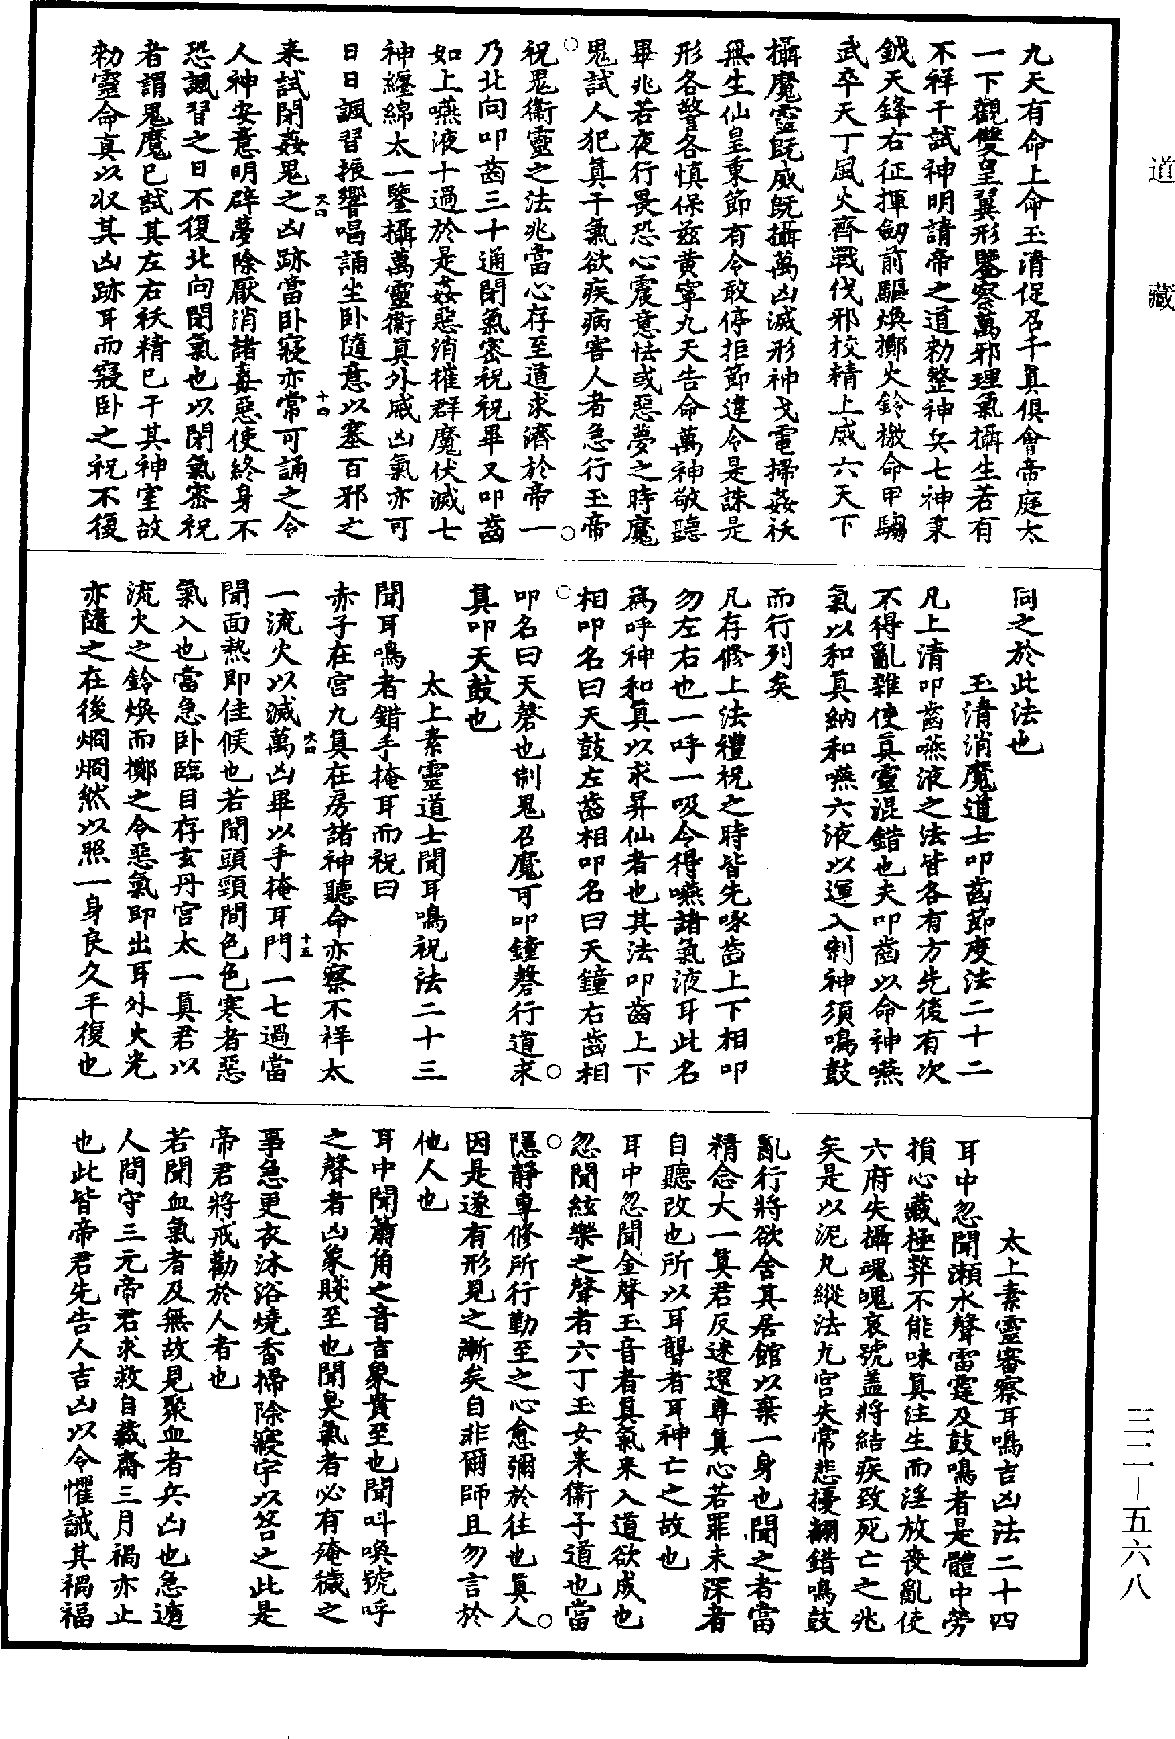 道藏
九天有命上命玉清促召千真俱會帝庭太
一下觀雙皇翼形鑒察萬邪理氣攝生若有
不祥干試神明請帝之道勑整神兵七神秉
鉞天鋒右征揮劒前驅煥擲火鈴檄命甲騶
武卒天丁風火齊戰伐邪校精上威六天下
攝魔靈旣威旣攝萬凶滅形神戈電掃姦祅
無生仙皇秉節有令敢停拒節違令是誅是
形各警各慎保兹黄寧九天告命萬神敬聽
畢兆若夜行畏恐心震意怯或惡夢之時魔
鬼試人犯真干氣欲疾病害人者急行玉帝
祝鬼衛靈之法兆當心存至道求濟於帝一
乃北向叩齒三十通閉氣密祝祝畢又叩齒
如上嚥液十過於是姦惡消摧群魔伏滅七
神纏綿太一鑒攝萬靈衛真外威凶氣亦可
日日諷習振響唱誦坐卧隨意以塞百邪之
来試閉姦鬼之凶跡當卧寢亦常可誦之令
人神安意明辟夢除厭消諸毒惡使終身不
恐諷習之日不復北向閉氣也以閉氣密祝
者謂鬼魔已試其左右祅精已干其神室故
勑靈命真以収其凶跡耳而寢卧之祝不復
同之於此法也
玉清消魔道士叩齒節度法二十二
凡上清叩齒嚥液之法皆各有方先後有次
不得亂雜使真靈混錯也夫叩齒以命神嚥
氣以和真納和嚥六液以運入制神須鳴鼓
而行列矣
凡存修上法禮祝之時皆先啄齒上下相叩
勿左右也一呼一吸令得嚥諸氣液耳此名
為呼神和真以求昇仙者也其法叩齒上下
相叩名曰天鼓左齒相叩名曰天鐘右齒相
叩名曰天磬也制鬼召魔可叩鐘磬行道求
真叩天鼓也
太上素靈道士聞耳鳴祝法二十三
聞耳鳴者錯手掩耳而祝曰
赤子在宮九真在房諸神聽命亦察不祥太
一流火以滅萬凶畢以手掩耳門一七過當
聞面熱即佳候也若聞頭頸間色色寒者惡
氣入也當急卧臨目存玄丹宮太一真君以
流火之鈴煥而擲之令惡氣即出耳外火光
亦隨之在後烱烱然以照一身良久平復也
太上素靈審察耳鳴吉凶法二十四
耳中忽聞瀨水聲雷霆及鼓鳴者是體中勞
損心藏極弊不能味真注生而淫放喪亂使
六府失攝魂魄哀號盖將結疾致死亡之兆
矣是以泥丸縱法九宮失常悲擾翻錯鳴鼓
亂行將欲舍其居館以棄一身也聞之者當
精念大一真君反迷還專真心若罪未深者
自聽改也所以耳聾者耳神亡之故也
耳中忽聞金聲玉音者真氣来入道欲成也
忽聞絃樂之聲者六丁玉女来衛子道也當
隱靜專修所行勤至之心愈彌於往也真人
因是遂有形見之漸矣自非爾師且勿言於
他人也
耳中聞簫角之音吉象貴至也聞叫喚號呼
之聲者凶象賤至也聞臭氣者必有殗穢之
事急更衣沐浴燒香掃除寢宇以答之此是
帝君將戒勸於人者也
若聞血氣者及無故見聚血者兵凶也急遠
人間守三元帝君求救自藏齋三月禍亦止
也此皆帝君先告人吉凶以令懼誡其禍福
三二－五六八